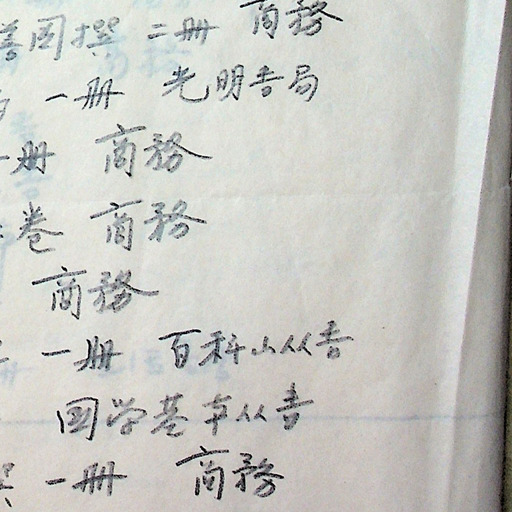 善圃撰 二册 商務
一册 光明書局
一册 商務
卷 商務
商務
一册 百科小从書
国学基本从書
撰 一册 商務